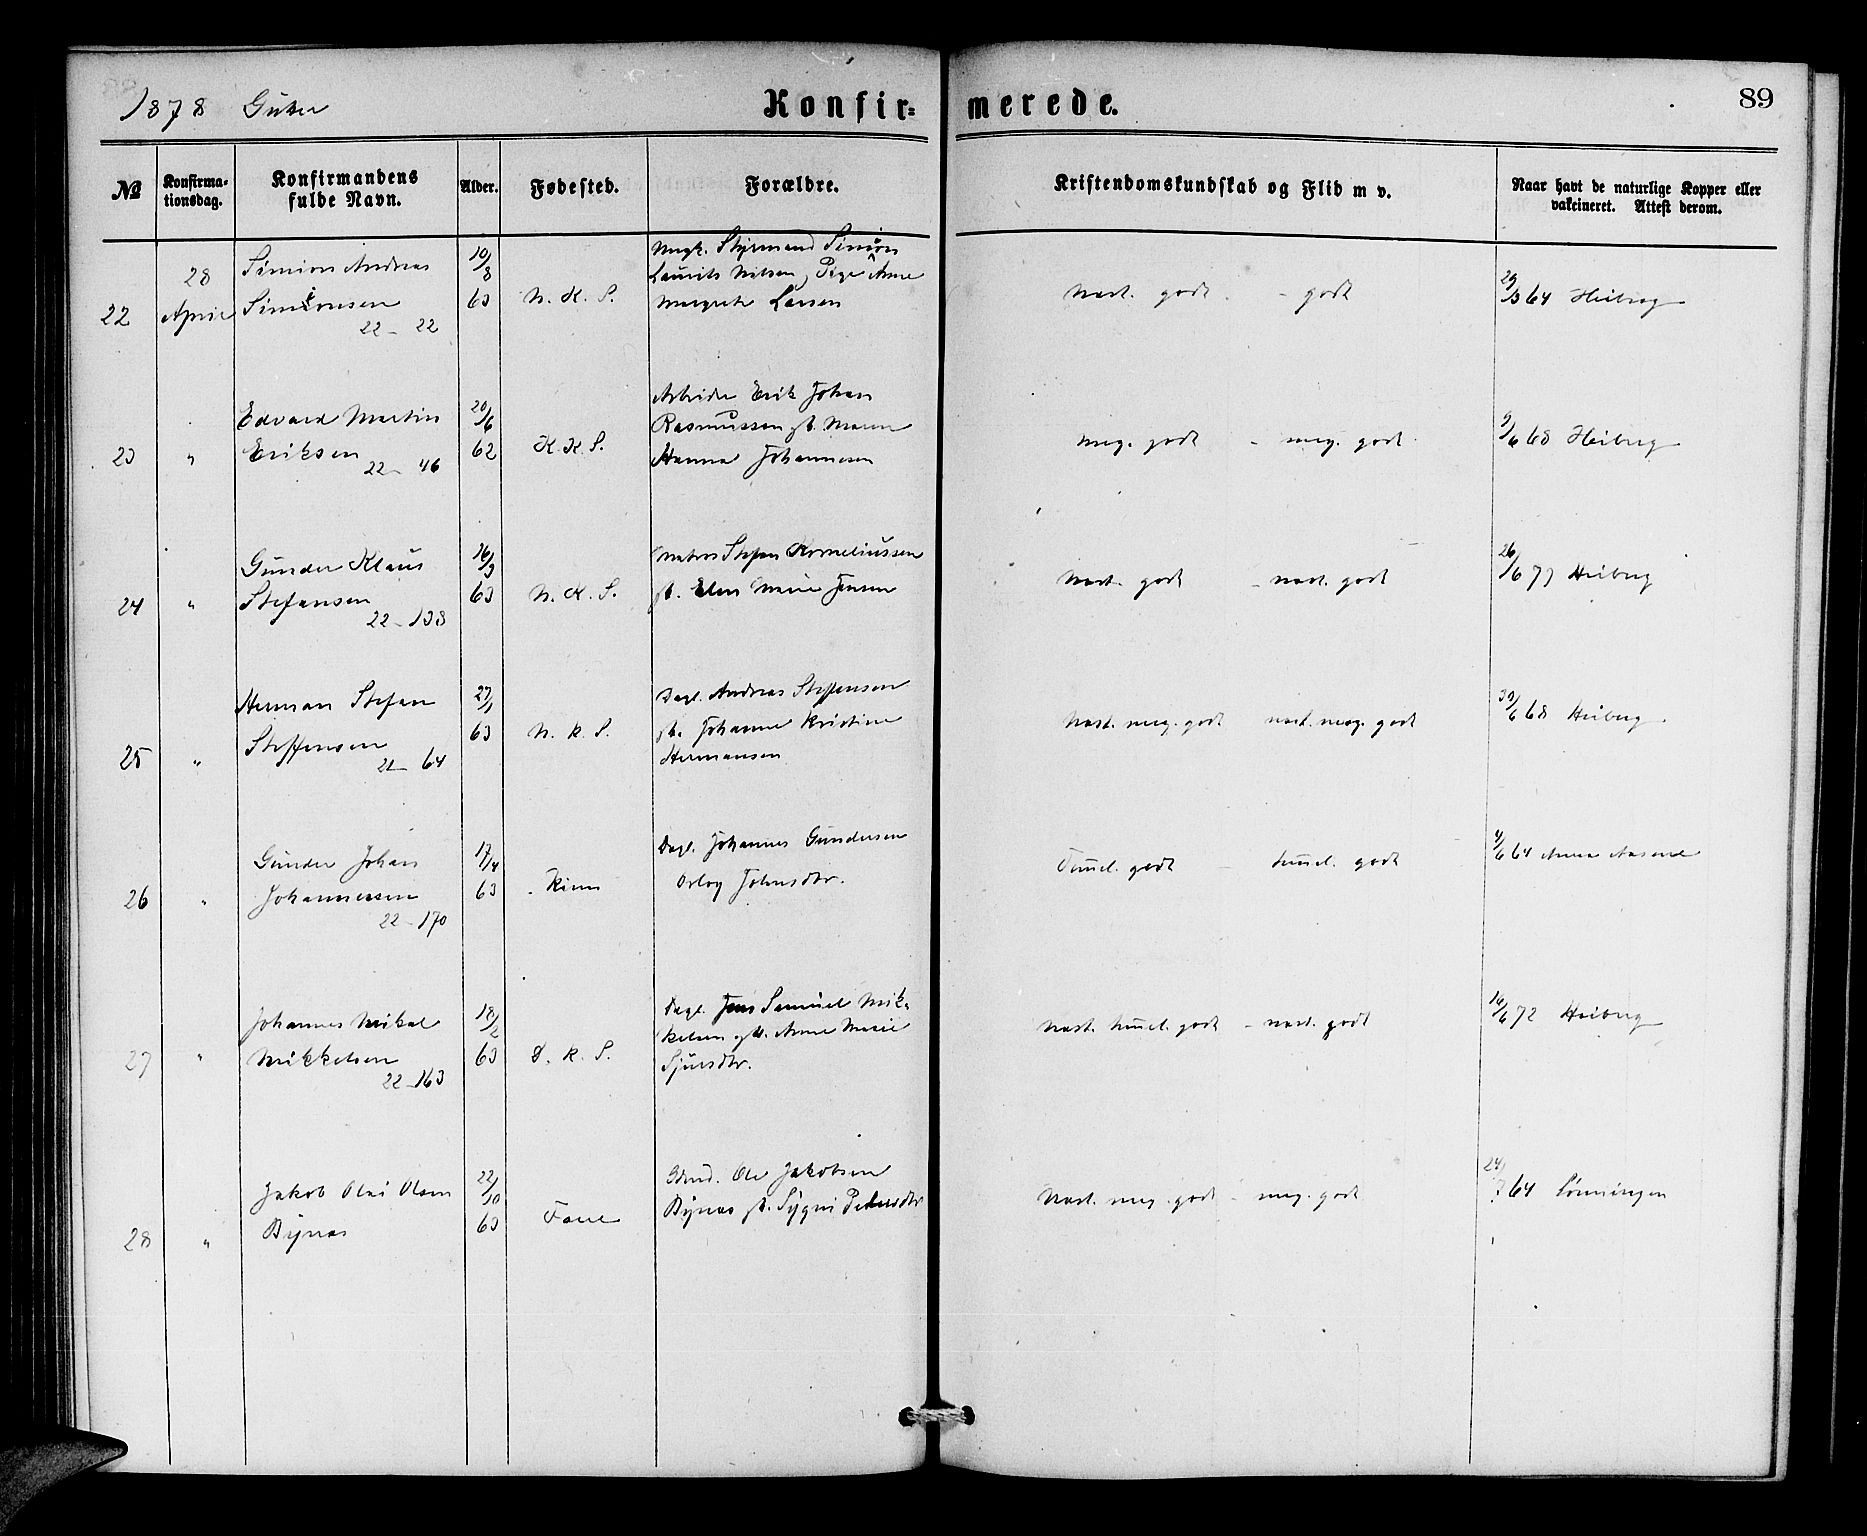 1878 Guter
Konfir= merede.
89
№
Konfirma-
tionsdag.
Konfirmandens
fulde Navn.
Alder.
Fødested.
Forældre.
Kristendomskundskab og Flid m v.
Naar havt de naturlige Kopper eller
vakcineret. Attest derom.
22
28
April
Simion Andreas
Simionsen
22 - 22
10/8
63
N. K. S.
Ungk. Styrmand Simion
Laurits Nilsen, Pige Anne
Margrete Larsen
Nast. godt. - godt
29/3 64 Heiberg
23 "
Edvard Martin
Eriksen
22 - 46
20/6
62
K. K. S.
Arbeider Erik Johan
Rasmussen gt. Maren
Hanna Johannesen
meg. godt - meg. godt.
9/6 68 Heiberg
24 "
Gunder Klaus
Stefansen
22 - 138
16/3
63
N. K. S.
Matros Stefan Korneliussen
gt. Elen Marie Jensen
Nast. godt - nast. godt
26/6 77 Heiberg
25 "
Herman Stefan
Steffensen
22 - 64
27/1
63
N. K. S.
Dagl. Andreas Steffensen
gt. Johanne Kristine
Hermansen
Nast. meg. godt nast. meg. godt
30/6 68 Heiberg.
26 "
Gunder Johan
Johannessen
22 - 170
17/4
63
Kinn
Dagl. Johannes Gundersen
Johnsdtr.
Temel. godt - temel. godt
4/6 64
27 "
Johannes Mikal
Mikkelsen
22 - 163
18/2
63
D. K. S.
Dagl. Jens Samuel Mik-
kelsen gt. Anne Marie
Sjursdtr.
Nast. temel. godt - nast. godt
16/6 72 Heiberg
28 "
Jakob Olai Olsen
Bynes
22/10
63
Fane
Gbrd. Ole Jakobsen
Bynes gt. Sygni Pedersdtr
Nast. meg. godt - meg. godt
24/7 64 Lönningen